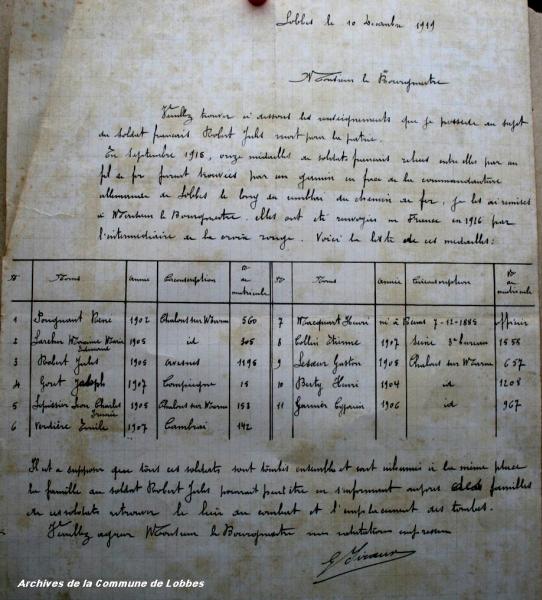 Lobbes le 10 Decembre 1919
Monsieur le Bourgmestre
Veuillez trouver ci dessous les renseignements que je possede au sujet
du soldat français Robert Jules mort pour la patrie.
En Septembre 1915, onze medailles de soldats français reliees entre elles par un
fil de fer furent trouvées par un gamin en face de la commandanture
allemande de Lobbes le long du remblai du chemin de fer, je les ai remises
à Monsieur le Bourgmestre. elles ont été renvoyées en France en 1916 par
l'intermédiaire de la croix rouge. Voici la liste de ces medailles:
N° Noms année Circonscription N° de matricule N° Noms année Circonscription N° de matricule
1 René 1902 Chalons sur Marne 560 7 Macquart Henri né à Reims 7-12-1885 officier
2 Marie 1905 id 305 8 Collin Etienne 1907 Seine 3e bureau 1558
3 Robert Jules 1905 Avesnes 1195 9 Leseur Gaston 1905 Chalons sur Marne 657
4 Gout Joseph 1907 Compiegne 15 10 Henri 1904 id 1208
5 Lepissier Leon Charles 1905 Chalons sur Marne 153 11 Garnier Cyprien 1906 id 967
6 Verdière Emile 1907 Cambrai 142
Il est a supposer que tous ces soldats sont tombés ensemble et sont inhumés à la même place
la famille du soldat Robert Jules pourrait peut être en s'informant aupres des familles
de ces soldats retrouver le lieu du combat et l'emplacement des tombes.
Veuillez agreer Monsieur le Bourgmestre mes salutations empressées
Archives de la Commune de Lobbes